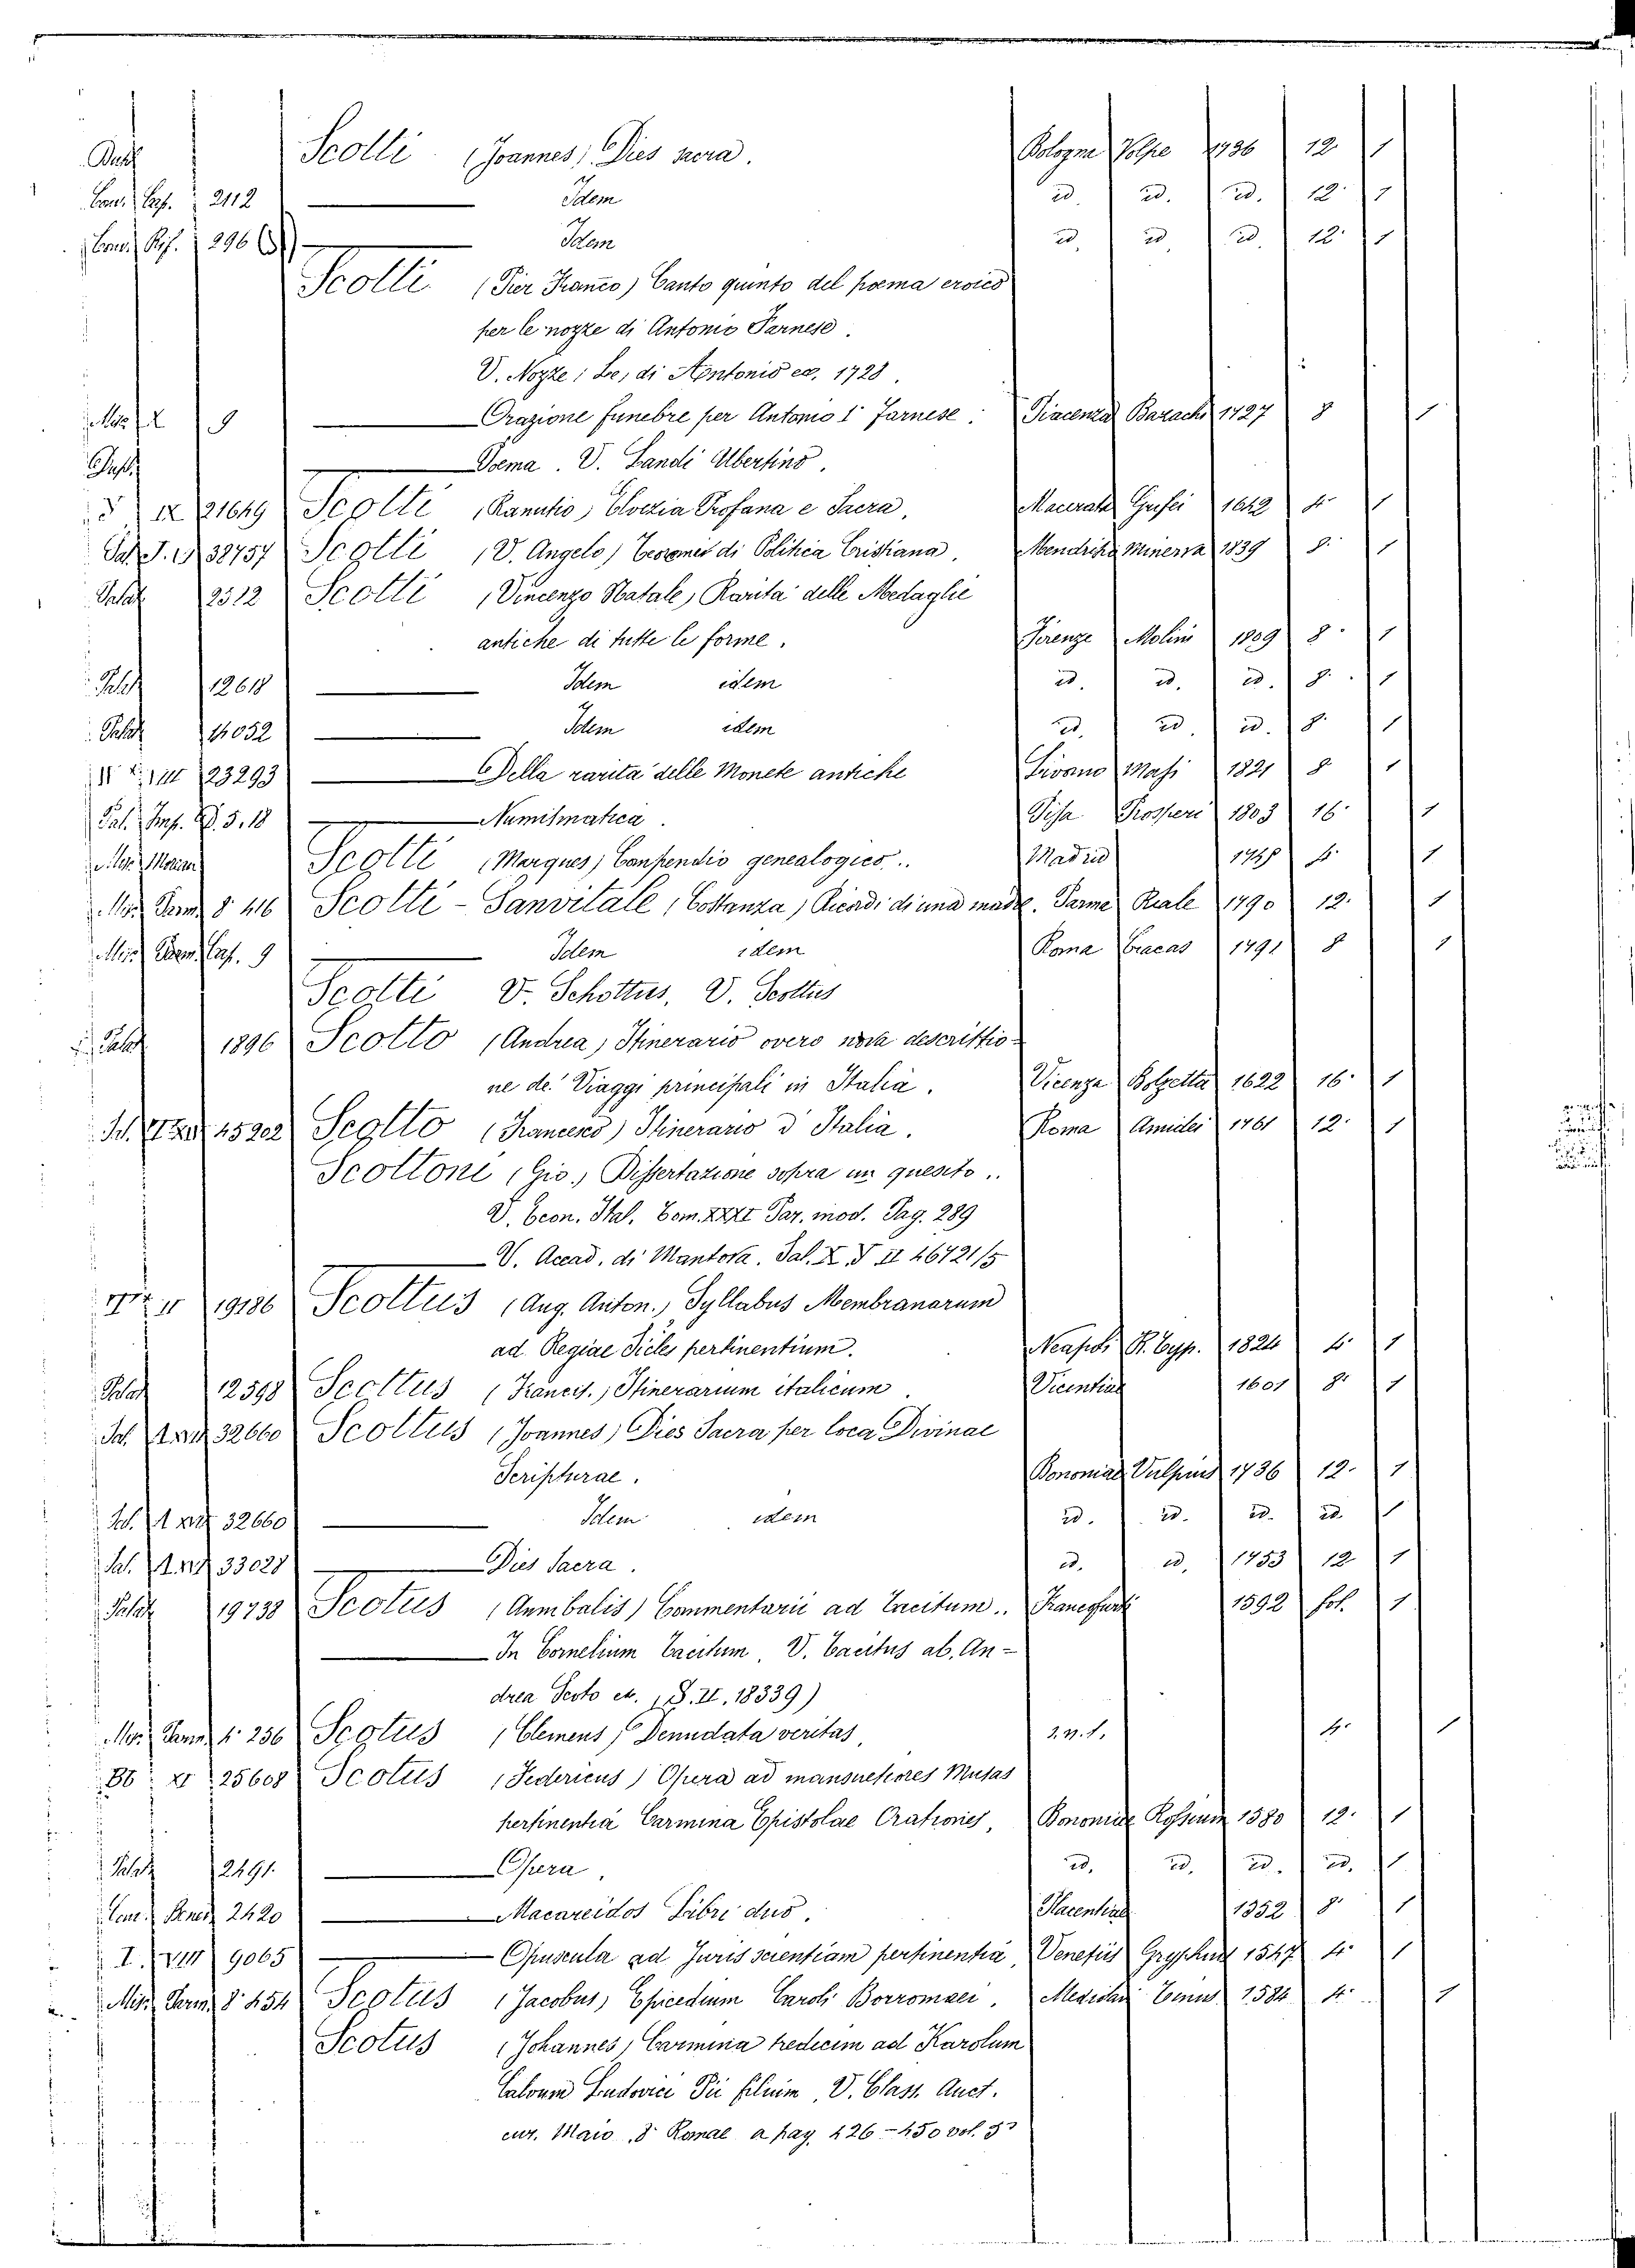 Scotti (Joannes) Dies sacra. Bologna Volpe 1736 12. 1
Conv. Cap. 2112 Idem id id. id. 12. 1
Conv. Rif. 296 Idem id. id id. 12. 1
Scotti (Pier Franco) Canto quinto del poema eroico
per le nozze di Antonio Farnese.
V. Nozze (Le) di Antonio ec. 1728.
9 Orazione funebre per Antonio I Farnese. Piacenza Barachi 1727 8 1
Poema. V. Landi Ubertino.
21649 Scotti (Ranutio) Elvezia Profana e Sacra, Macerata Grisei 1642 4 1
38757 Scotti (V. Angelo) Teoremi di Politica Cristiana. Mendrisio Minerva 1839 8. 1
Palat 2312 Scotti (Vincenzo Natale) Rarità delle Medaglie
antiche di tutte le forme. Firenze Molini 1809 8. 1
Palat 12618 Idem idem id. id. id. 8. 1
Palat 14052 Idem idem id. id. id. 8. 1
23293 Della rarità delle Monete antiche Livorno Masi 1821 8 1
Pal. Imp. 5. 18 Numismatica. Pisa Prosperi 1803 16. 1
Scotti (Marques) Conpendio genealogico.. Madrid 4. 1
Mis. Parm. 8. 416 Scotti-Sanvitale (Costanza) Ricordi di una madre. Parma Reale 1790 12. 1
Mis. Parm. Cap. 9 Idem idem Roma Cracas 1791 8 1
Scotti V. Schottus, V. Scottus
Palat 1896 Scotto (Andrea) Itinerario overo nova descrittio-
ne de' Viaggi principali in Italia. Vicenza Bolzetta 1622 16. 1
45202 Scotto (Francesco) Itinerario d'Italia. Roma Amidei 1761 12. 1
Scottoni (Gio.) Dissertazione sopra un quesito..
V. Econ. Ital. Tom. XXXI Par. mod. Pag. 289
V. Accad. di Mantova. Sal. X. V II 46721/5
19186 Scottus (Aug. Anton.) Syllabus Membranarum
ad Regiae Sicles pertinentium. Neapoli R. Typ. 1824 4. 1
Palat 12598 Scottus (Francis.) Itinerarium italicum. Vicentiae 1601 8. 1
32660 Scottus (Joannes) Dies Sacra per loca Divinae
Scripturae. Bononiae Vulpius 1736 12. 1
32660 Idem idem id. id. id. id. 1
33028 Dies Sacra. id. id. 1753 12 1
Palat 19738 Scotus (Annibalis) Commentarii ad Tacitum.. Francofurti 1592 fol. 1
In Cornelium Tacitum, V. Tacitus ab. An-
drea Scoto ec. (S. II, 18339)
Mis. Parm. 4. 256 Scotus (Clemens) Denudata veritas. s. n. t. 4. 1
25608 Scotus (Federicus) Opera ad mansuetiores Musas
pertinentia Carmina Epistolae Orationes, Bononiae Rossium 1580 12. 1
Palat 2491. Opera, id. id. id. id. 1
2420 Macareidos Libri duo. Placentiae 1552 8. 1
I. VIII 9065 Opuscula ad Juris scientiam pertinentia, Venetiis Gryphius 1547 4. 1
Mis. Parm. 8. 454 Scotus (Jacobus) Epicedium Caroli Borromaei. Mediolani Tinius 1584 4. 1
Scotus (Johannes) Carmina tredecim ad Karolum
Calvum Ludovici Pii filium, V. Class. Auct.
cur. Maio, 8. Romae a pag. 426-450 vol. 5°